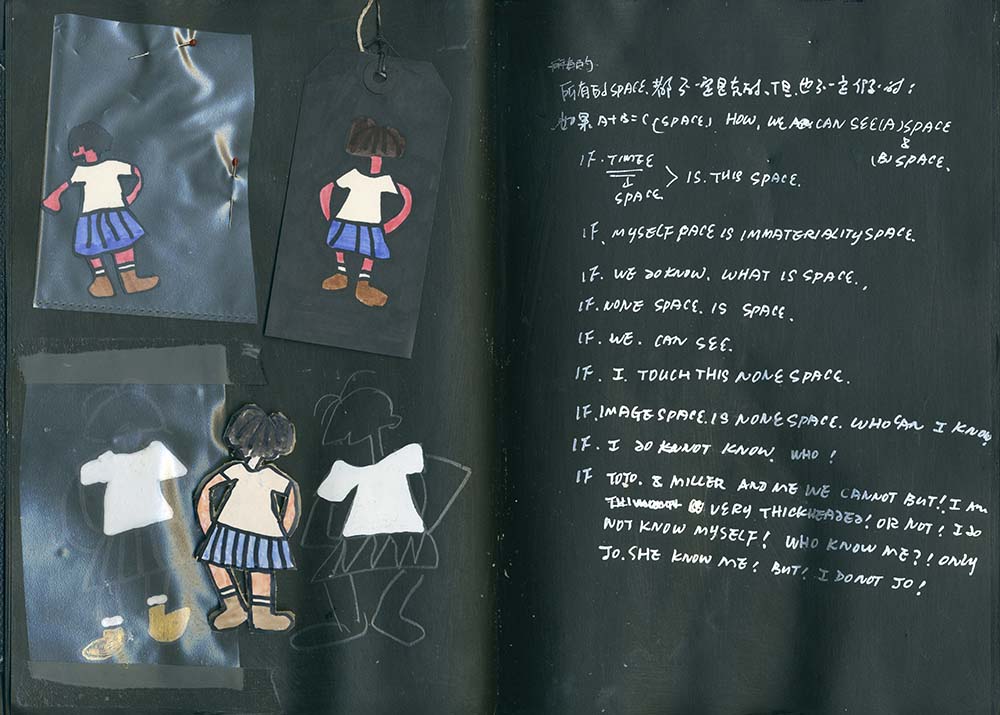 所有的SPACE.都不一定是真的.但.也不一定是假的:
如果 A+B=C (SPACE). HOW, WE CAN SEE(A)SPACE
&
(B)SPACE.
IF. TIME
SPACE
> IS. THIS SPACE.
IF. MYSELF PACE IS IMMATERIALITY SPACE.
IF. WE DO KNOW. WHAT IS SPACE.,
IF. NONE SPACE. IS SPACE.
IF. WE. CAN SEE.
IF. I. TOUCH THIS NONE SPACE.
IF. IMAGE SPACE. IS NONE SPACE. WHO CAN I KNOW
IF. I DO KNNOT KNOW. WHO!
IF TOJO. & MILLER AND ME WE CANNOT BUT! I AM
VERY THICKHEADED! OR NOT! I DO
NOT KNOW MYSELF! WHO KNOW ME?! ONLY
JO. SHE KNOW ME! BUT! I DO NOT JO!